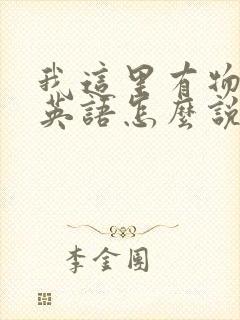 我這里有物
英語怎麼説
李金團